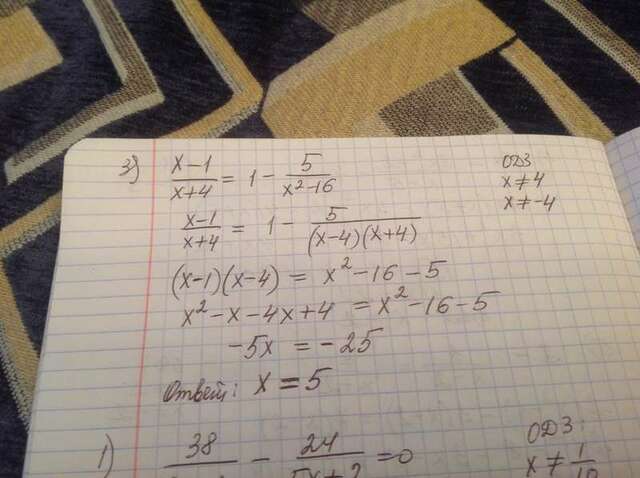 3) (x-1)/(x+4) = 1 - 5/(x²-16)
ОДЗ
x≠4
x≠-4
(x-1)/(x+4) = 1 - 5/((x-4)(x+4))
(x-1)(x-4) = x²-16-5
x²-x-4x+4 = x²-16-5
-5x = -25
Ответ: x = 5
1) 38/ - 24/(5x+2) = 0
ОДЗ:
x≠1/10